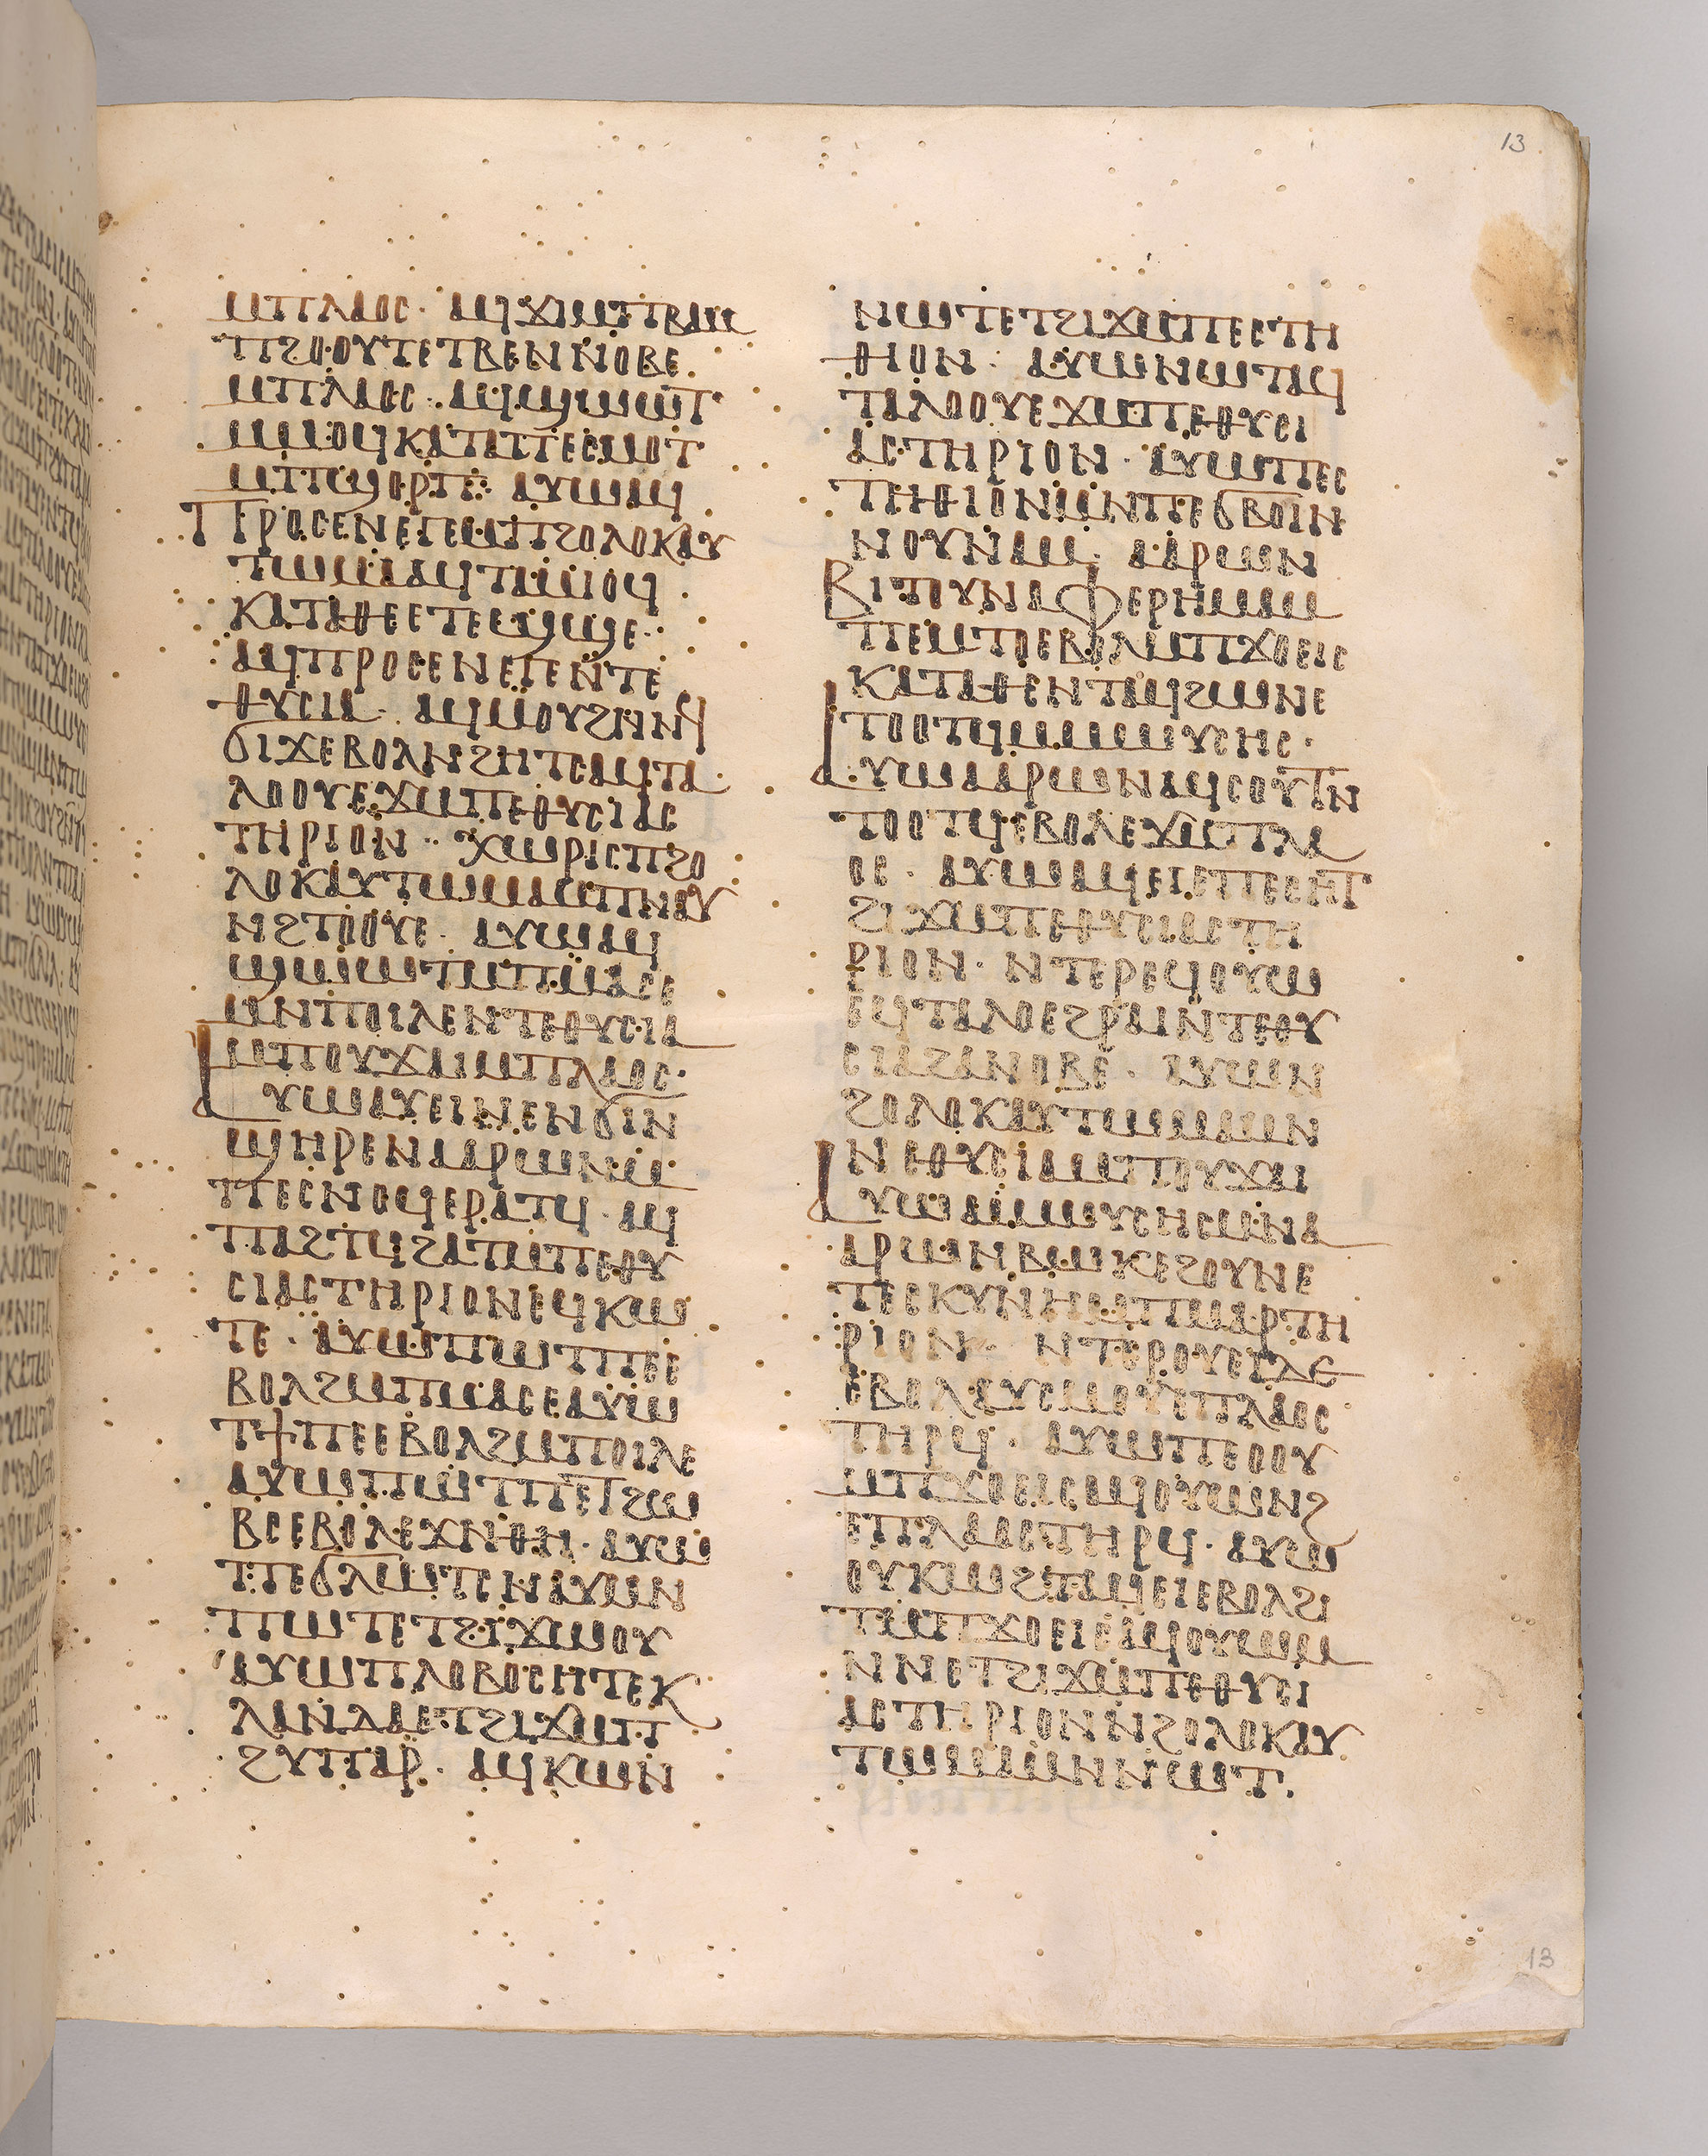 ⲙⲡⲗⲁⲟⲥ· ⲁϥϫⲓⲙⲡⲃⲁⲙ
ⲡϩⲟⲟⲩⲧⲉⲧⲃⲉⲛⲛⲟⲃⲉ
ⲙⲡⲗⲁⲟⲥ· ⲁϥϣⲱⲱⲧ
ⲙⲙⲟϥⲕⲁⲧⲁⲡⲉⲥⲙⲟⲧ
ⲙⲡϣⲟⲣⲡ: ⲁⲩⲱⲁϥ
ⲡⲣⲟⲥⲉⲛⲉⲅⲉⲙⲡϩⲟⲗⲟⲕⲁⲩ
ⲧⲱⲙⲁⲁϥⲧⲁⲙⲓⲟϥ
ⲕⲁⲧⲁⲑⲉⲉⲧⲉϣϣⲉ·
ⲁϥⲡⲣⲟⲥⲉⲛⲉⲅⲉⲛⲧⲉ
ⲑⲩⲥⲓⲁ· ⲁϥⲙⲟⲩϩⲛⲛϥ
ϭⲓϫⲉⲃⲟⲗⲛϩⲏⲧⲥⲁϥⲧⲁ
ⲗⲟⲟⲩⲉϫⲙⲡⲉⲑⲩⲥⲓⲁⲥ
ⲧⲏⲣⲓⲟⲛ·· ⲭⲱⲣⲓⲥⲡϩⲟ
ⲗⲟⲕⲁⲩⲧⲱⲙⲁⲙⲡⲛⲁⲩ
ⲛϩⲧⲟⲟⲩⲉ· ⲁⲩⲱⲁϥ
ϣⲱⲱⲧⲙⲡⲙⲁⲥⲉ
ⲙⲛⲡⲟⲓⲗⲉⲛⲧⲉⲑⲩⲥⲓⲁ
ⲙⲡⲟⲩϫⲁⲓⲙⲡⲗⲁⲟⲥ·
ⲁⲩⲱⲁⲩⲉⲓⲛⲉⲛϭⲓⲛ
ϣⲏⲣⲉⲛⲁⲁⲣⲱⲛⲙ
ⲡⲉⲥⲛⲟϥⲉⲣⲁⲧϥ· ⲁϥ
ⲡⲁϩⲧϥϩⲁⲧⲙⲡⲉⲑⲩ
ⲥⲓⲁⲥⲧⲏⲣⲓⲟⲛⲉϥⲕⲱ
ⲧⲉ· ⲁⲩⲱⲡⲱⲧⲡⲉⲉ
ⲃⲟⲗϩⲙⲡⲙⲁⲥⲉⲁⲩⲱ
ⲧϯⲡⲉⲉⲃⲟⲗϩⲙⲡⲟⲓⲗⲉ
ⲁⲩⲱⲡⲱⲧⲡⲉⲧϩⲱ
ⲃⲥⲉⲃⲟⲗⲉϫⲛⲑⲏ· ⲁⲩⲱ
ⲧⲉϭⲗⲱⲧⲥⲛⲁⲩⲙⲛ
ⲡⲱⲧⲉⲧϩⲓϫⲱⲟⲩ
ⲁⲩⲱⲡⲗⲟⲃⲟⲥⲏⲧⲉⲕ
ⲗⲁⲛⲇⲁⲉⲧϩⲓϫⲙⲡ
ϩⲩⲡⲁⲣ· ⲁϥⲕⲱⲛ
ⲛⲱⲧⲉⲧϩⲓϫⲙⲡⲉⲥⲧⲏ
ⲑⲓⲟⲛ· ⲁⲩⲱⲛⲱⲧⲁϥ
ⲧⲁⲗⲟⲟⲩⲉϫⲙⲡⲉⲑⲩⲥⲓ
ⲁⲥⲧⲏⲣⲓⲟⲛ· ⲁⲩⲱⲡⲉⲥ
ⲧⲏⲑⲓⲟⲛⲙⲛⲡⲉϭⲃⲟⲓⲛ
ⲛⲟⲩⲛⲁⲙ· ⲁⲁⲣⲱⲛ
ϥⲓⲧⲟⲩⲛⲁⲫⲉⲣⲏⲙⲁⲙ
ⲡⲉⲙⲧⲟⲉⲃⲟⲗⲙⲡϫⲟⲉⲓⲥ
ⲕⲁⲧⲁⲑⲉⲛⲧⲁϥϩⲱⲛⲉ
ⲧⲟⲟⲧϥⲙⲙⲱⲩⲥⲏⲥ·
ⲁⲩⲱⲁⲁⲣⲱⲛⲁϥⲥⲟⲩⲧⲛ
ⲧⲟⲟⲧϥⲉⲃⲟⲗⲉϫⲙⲡⲗⲁ
ⲟⲥ· ⲁⲩⲱⲁϥⲉⲓⲉⲡⲉⲥⲏⲧ
ϩⲓϫⲙⲡⲉⲑⲩⲥⲓⲁⲥⲧⲏ
ⲣⲓⲟⲛ· ⲛⲧⲉⲣⲉϥⲟⲩⲱ
ⲉϥⲧⲁⲗⲟⲉϩⲣⲁⲓⲛⲧⲉⲑⲩ
ⲥⲓⲁϩⲁⲛⲟⲃⲉ· ⲁⲩⲱⲛ
ϩⲟⲗⲟⲕⲁⲩⲧⲱⲙⲁⲙⲛ
ⲛⲉⲑⲩⲥⲓⲁⲙⲡⲟⲩϫⲁⲓ
ⲁⲩⲱⲁⲙⲱⲩⲥⲏⲥⲙⲛⲁ
ⲁⲣⲱⲛⲃⲱⲕⲉϩⲟⲩⲛⲉ
ⲧⲉⲥⲕⲩⲛⲏⲙⲡⲙⲁⲣⲧⲏ
ⲣⲓⲟⲛ· ⲛⲧⲉⲣⲟⲩⲉⲓⲇⲉ
ⲉⲃⲟⲗⲁⲩⲥⲙⲟⲩⲉⲡⲗⲁⲟⲥ
ⲧⲏⲣϥ· ⲁⲩⲱⲡⲉⲟⲟⲩ
ⲙⲡϫⲟⲉⲓⲥⲁϥⲟⲩⲱⲛϩ
ⲉⲡⲗⲁⲟⲥⲧⲏⲣϥ· ⲁⲩⲱ
ⲟⲩⲕⲱϩⲧⲁϥⲉⲓⲉⲃⲟⲗϩⲓ
ⲧⲙⲡϫⲟⲉⲓⲥⲁϥⲟⲩⲱⲙ
ⲛⲛⲉⲧϩⲓϫⲙⲡⲉⲑⲩⲥⲓ
ⲁⲥⲧⲏⲣⲓⲟⲛⲛϩⲟⲗⲟⲕⲁⲩ
ⲧⲱⲙⲁⲙⲛⲛⲱⲧ·
13
13